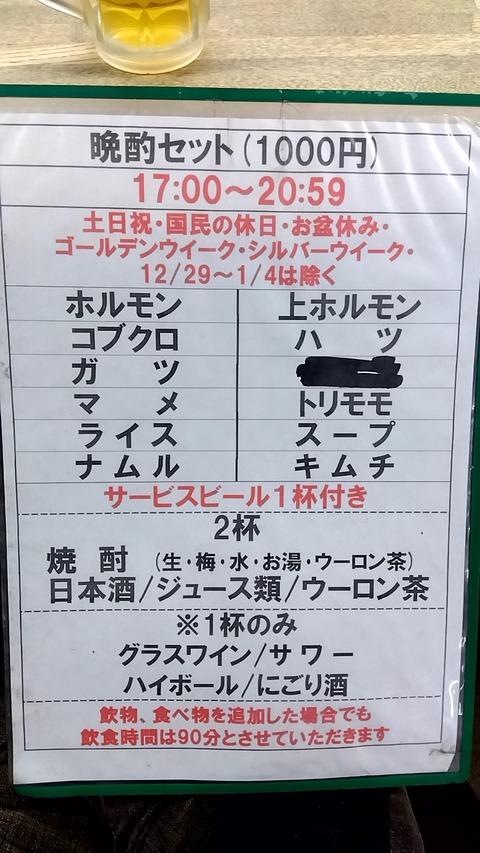 晩酌セット(1000円)
17:00〜20:59
土日祝・国民の休日・お盆休み・
ゴールデンウイーク・シルバーウイーク・
12/29〜1/4は除く
ホルモン 上ホルモン
コブクロ ハツ
ガツ
マメ トリモモ
ライス スープ
ナムル キムチ
サービスビール1杯付き
2杯
焼酎 (生・梅・水・お湯・ウーロン茶)
日本酒/ジュース類/ウーロン茶
※1杯のみ
グラスワイン/サワー
ハイボール/にごり酒
飲物、食べ物を追加した場合でも
飲食時間は90分とさせていただきます